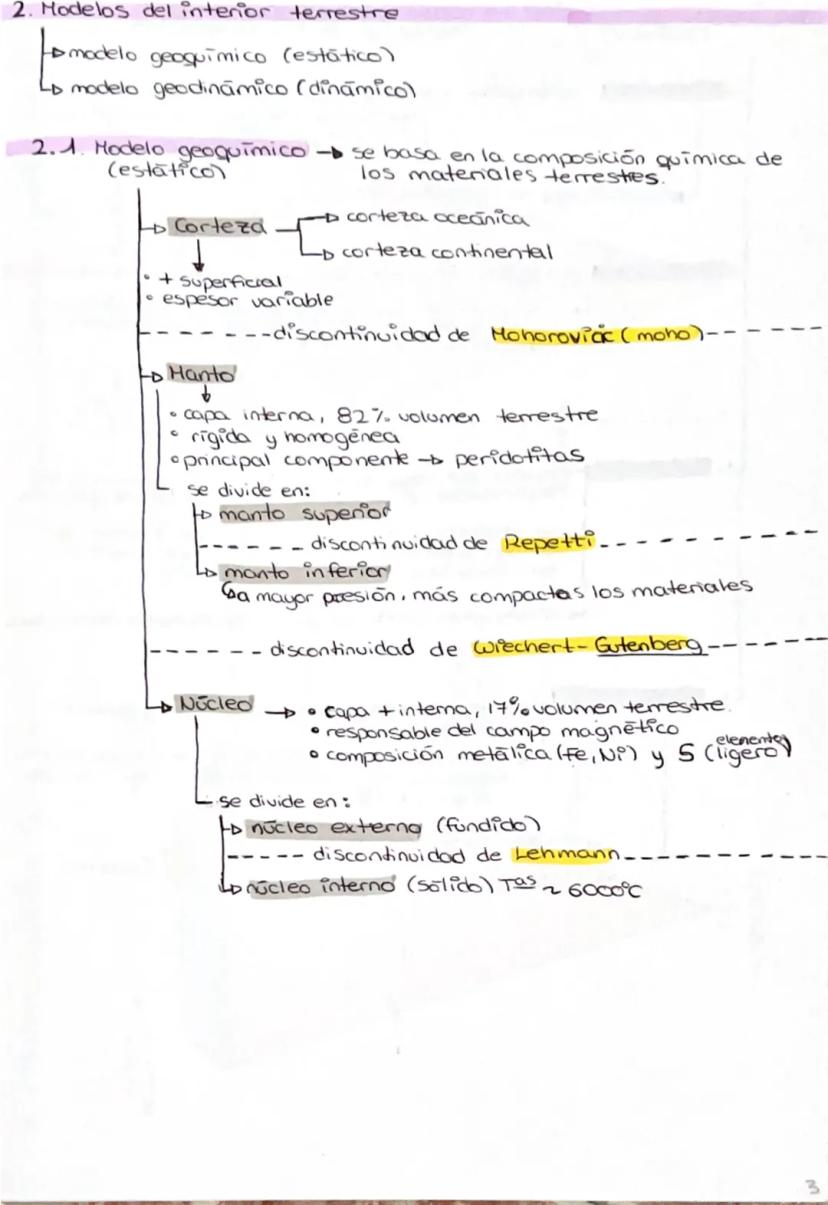 2. Modelos del interior terrestre
modelo geoquímico (estático)
modelo geodinámico (dinámico)
2.1. Modelo geoquímico → se basa en la composición química de
(estático) los materiales terrestres.
Corteza → corteza oceánica
→ corteza continental
• + superficial
• espesor variable
discontinuidad de Mohorovičić (moho)
Manto
• capa interna, 82% volumen terrestre
• rígida y homogénea
• principal componente → peridotitas
se divide en:
manto superior
discontinuidad de Repetti
manto inferior
a mayor presión, más compactos los materiales
discontinuidad de Wiechert-Gutenberg
Núcleo → • capa + interna, 17% volumen terrestre.
• responsable del campo magnético
• composición metálica (Fe, Ni) y S (elemento ligero)
se divide en:
núcleo externo (fundido)
discontinuidad de Lehmann
núcleo interno (sólido) Tas ~ 6000ºC
3